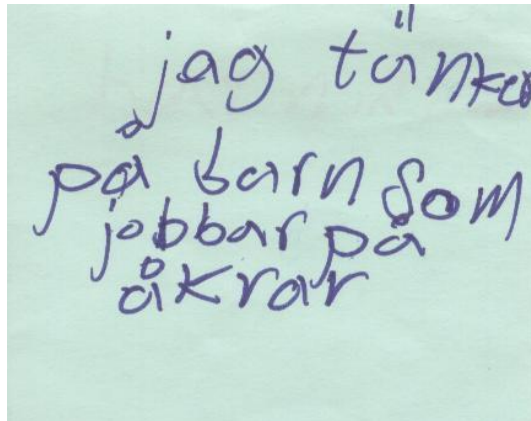 jag tänker
på barn som
jobbar på
åkrar